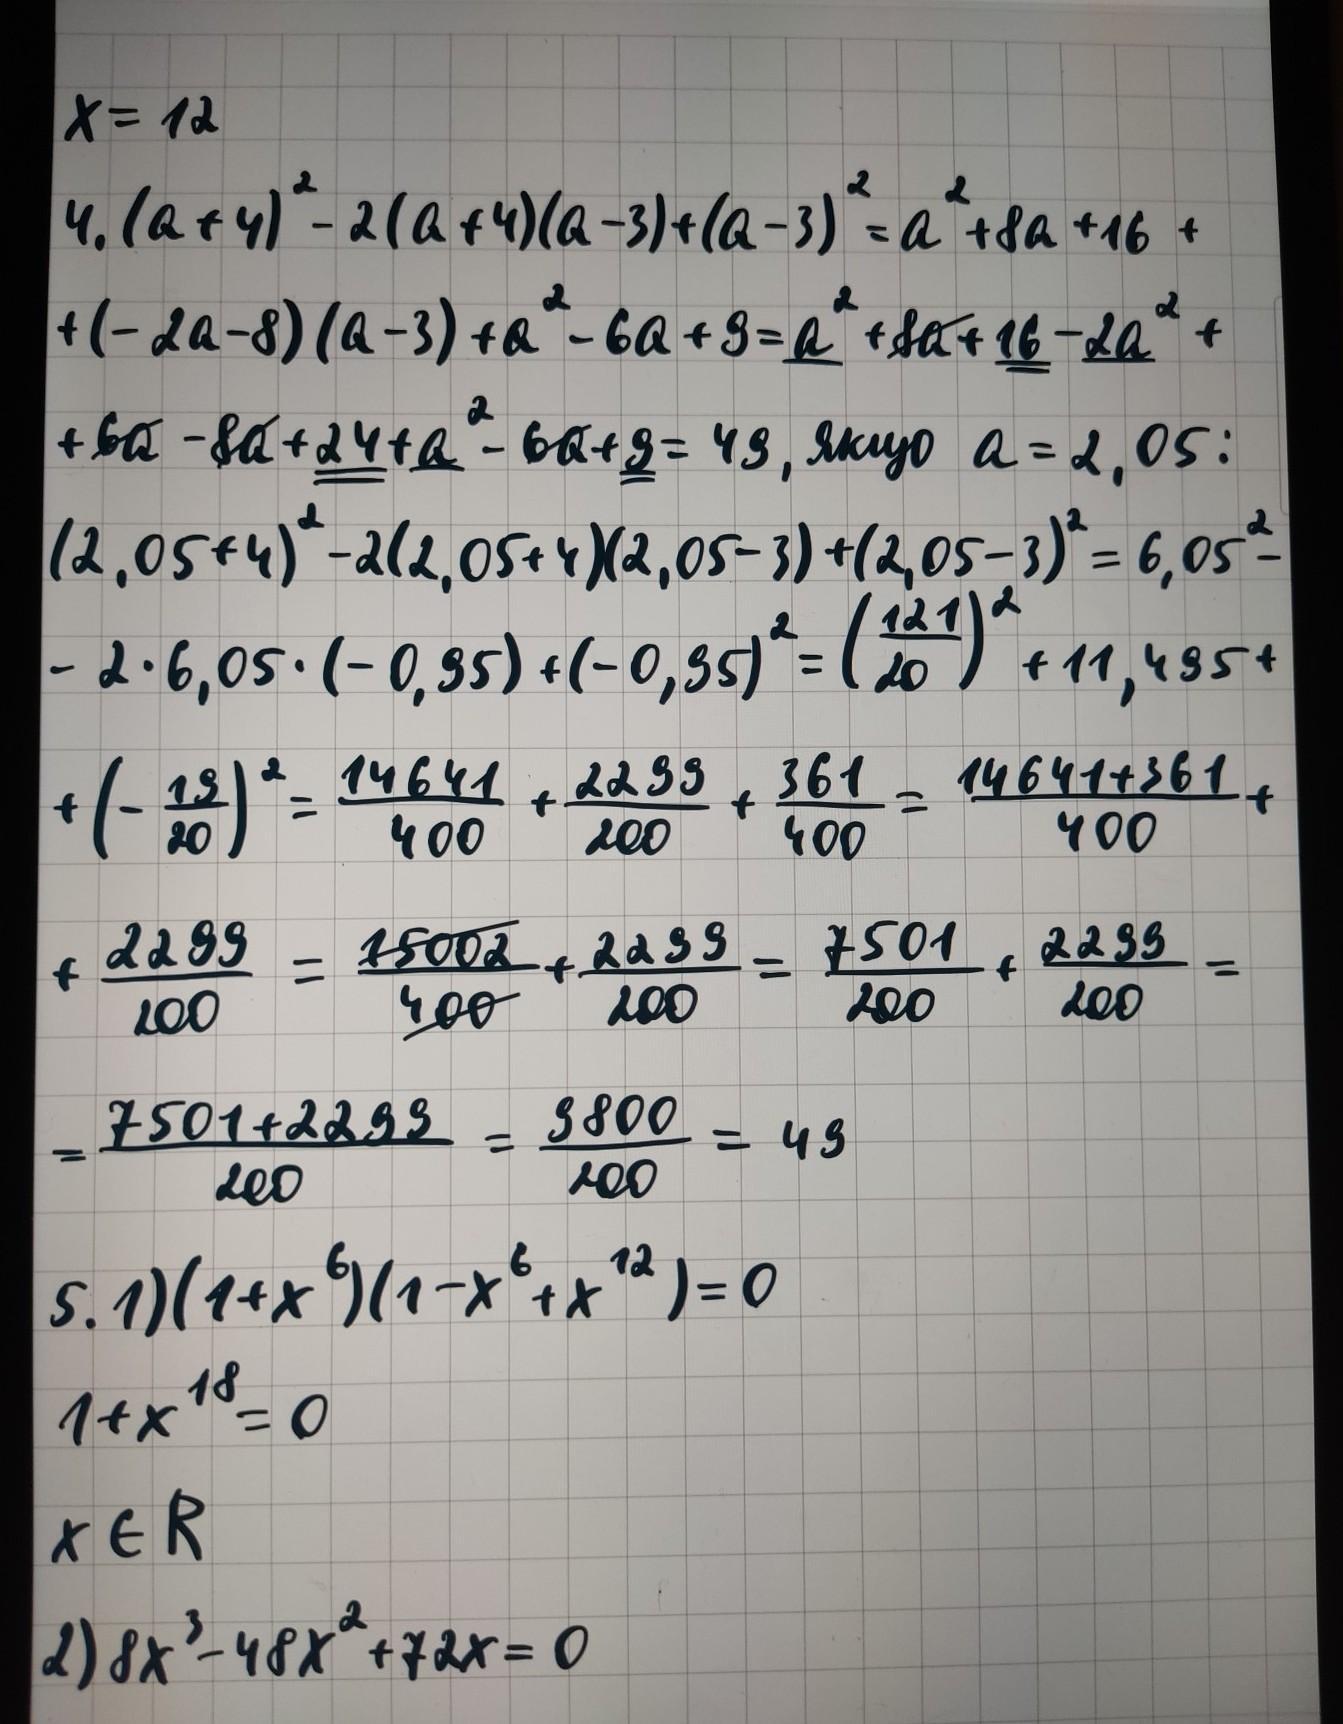 x = 12
4. (a+4)² - 2(a+4)(a-3)+(a-3)² = a²+8a+16 +
+(-2a-8)(a-3)+a²-6a+9=a²+8a+16-2a²+
+6a-8a+24+a²-6a+9=49, якщо a=2,05:
(2,05+4)²-2(2,05+4)(2,05-3)+(2,05-3)²=6,05²-
-2·6,05·(-0,95)+(-0,95)²=(121/20)²+11,495+
+(-19/20)²=14641/400+2299/200+361/400=14641+361/400+
+2299/200=15002/400+2299/200=7501/200+2299/200=
=7501+2299/200=9800/200=49
5. 1)(1+x⁶)(1-x⁶+x¹²)=0
1+x¹⁸=0
x∈R
2)8x³-48x²+72x=0